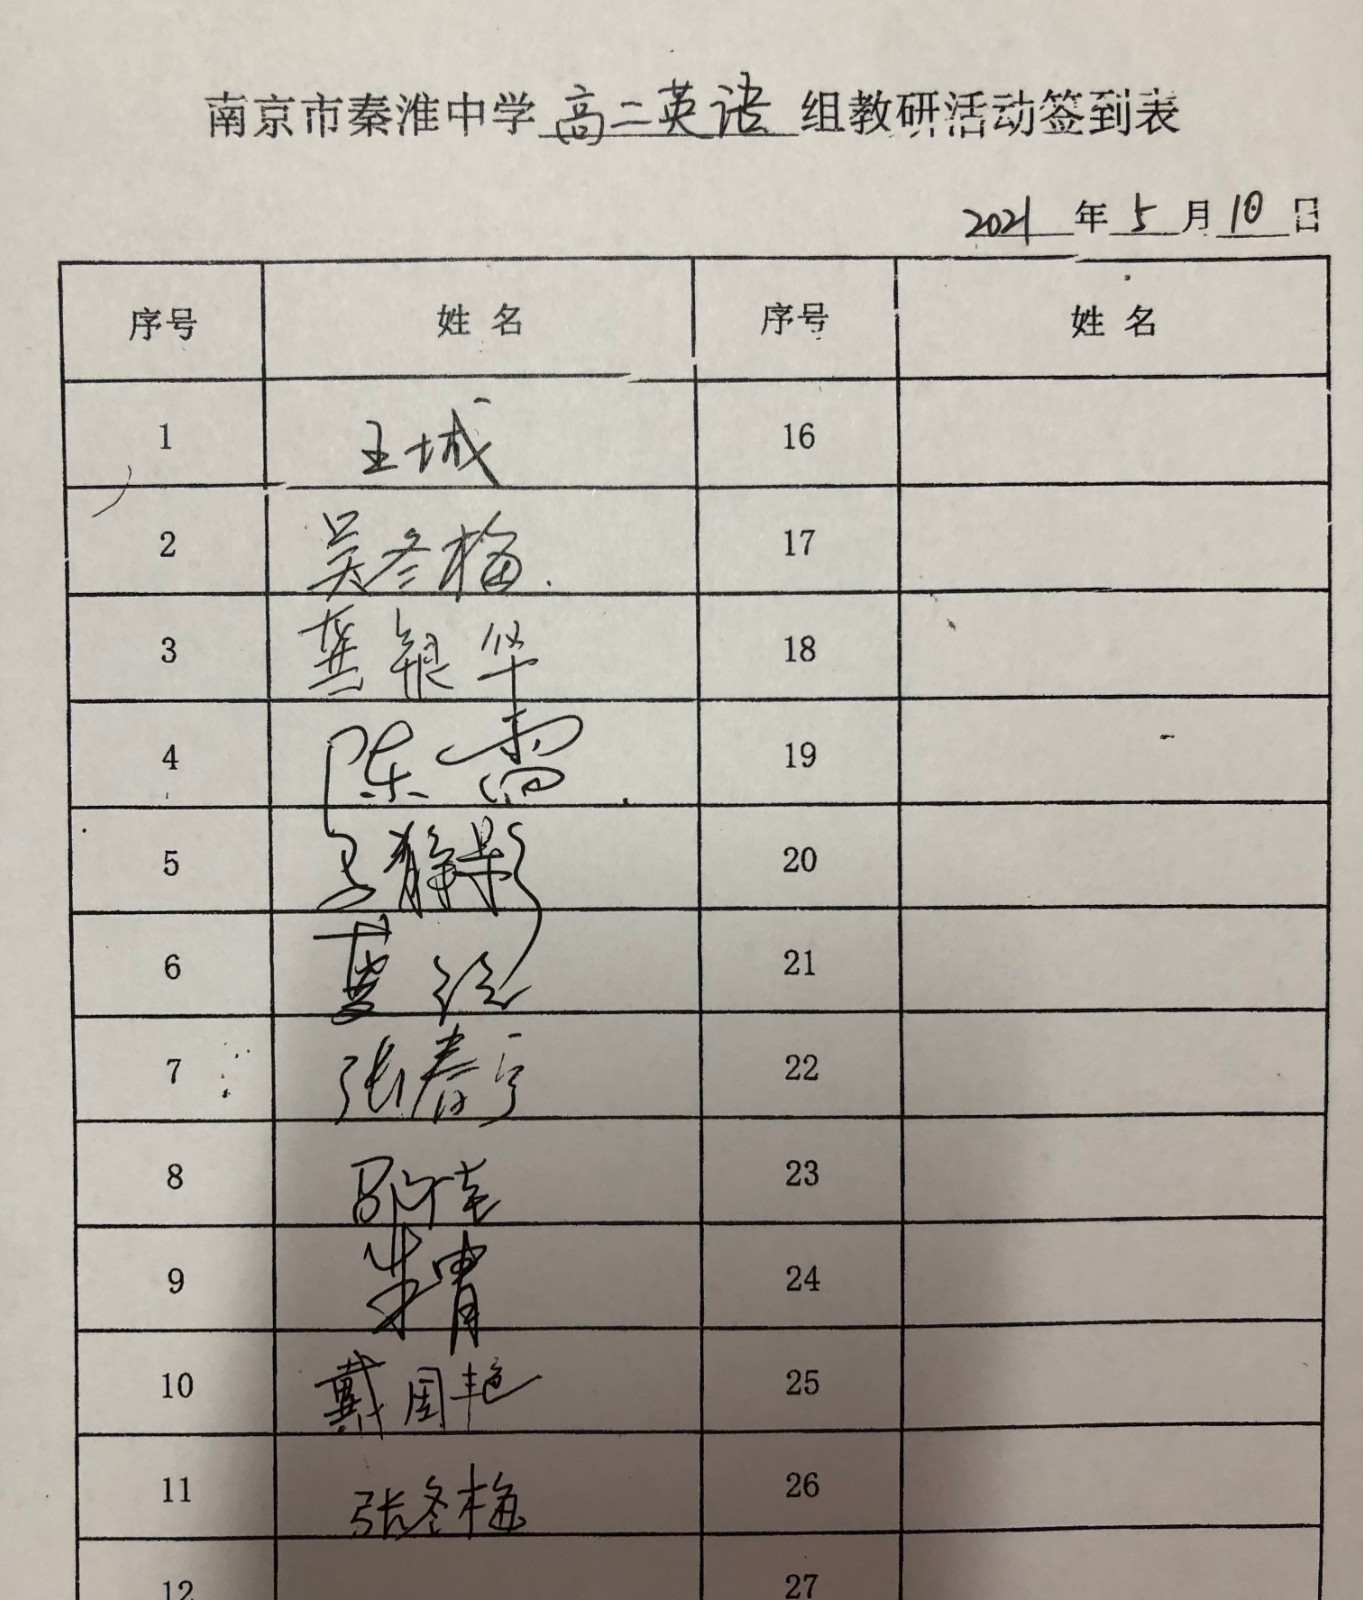 南京市秦淮中学 高二英语 组教研活动签到表
2021 年 5 月 10 日
序号 姓名 序号 姓名
1 王城 16
2 吴冬梅. 17
3 龚银华 18
4 陈雷. 19
5 王静影 20
6 葛 21
7 张春宁 22
8 23
9 朱胄 24
10 戴周艳 25
11 张冬梅 26
12 27